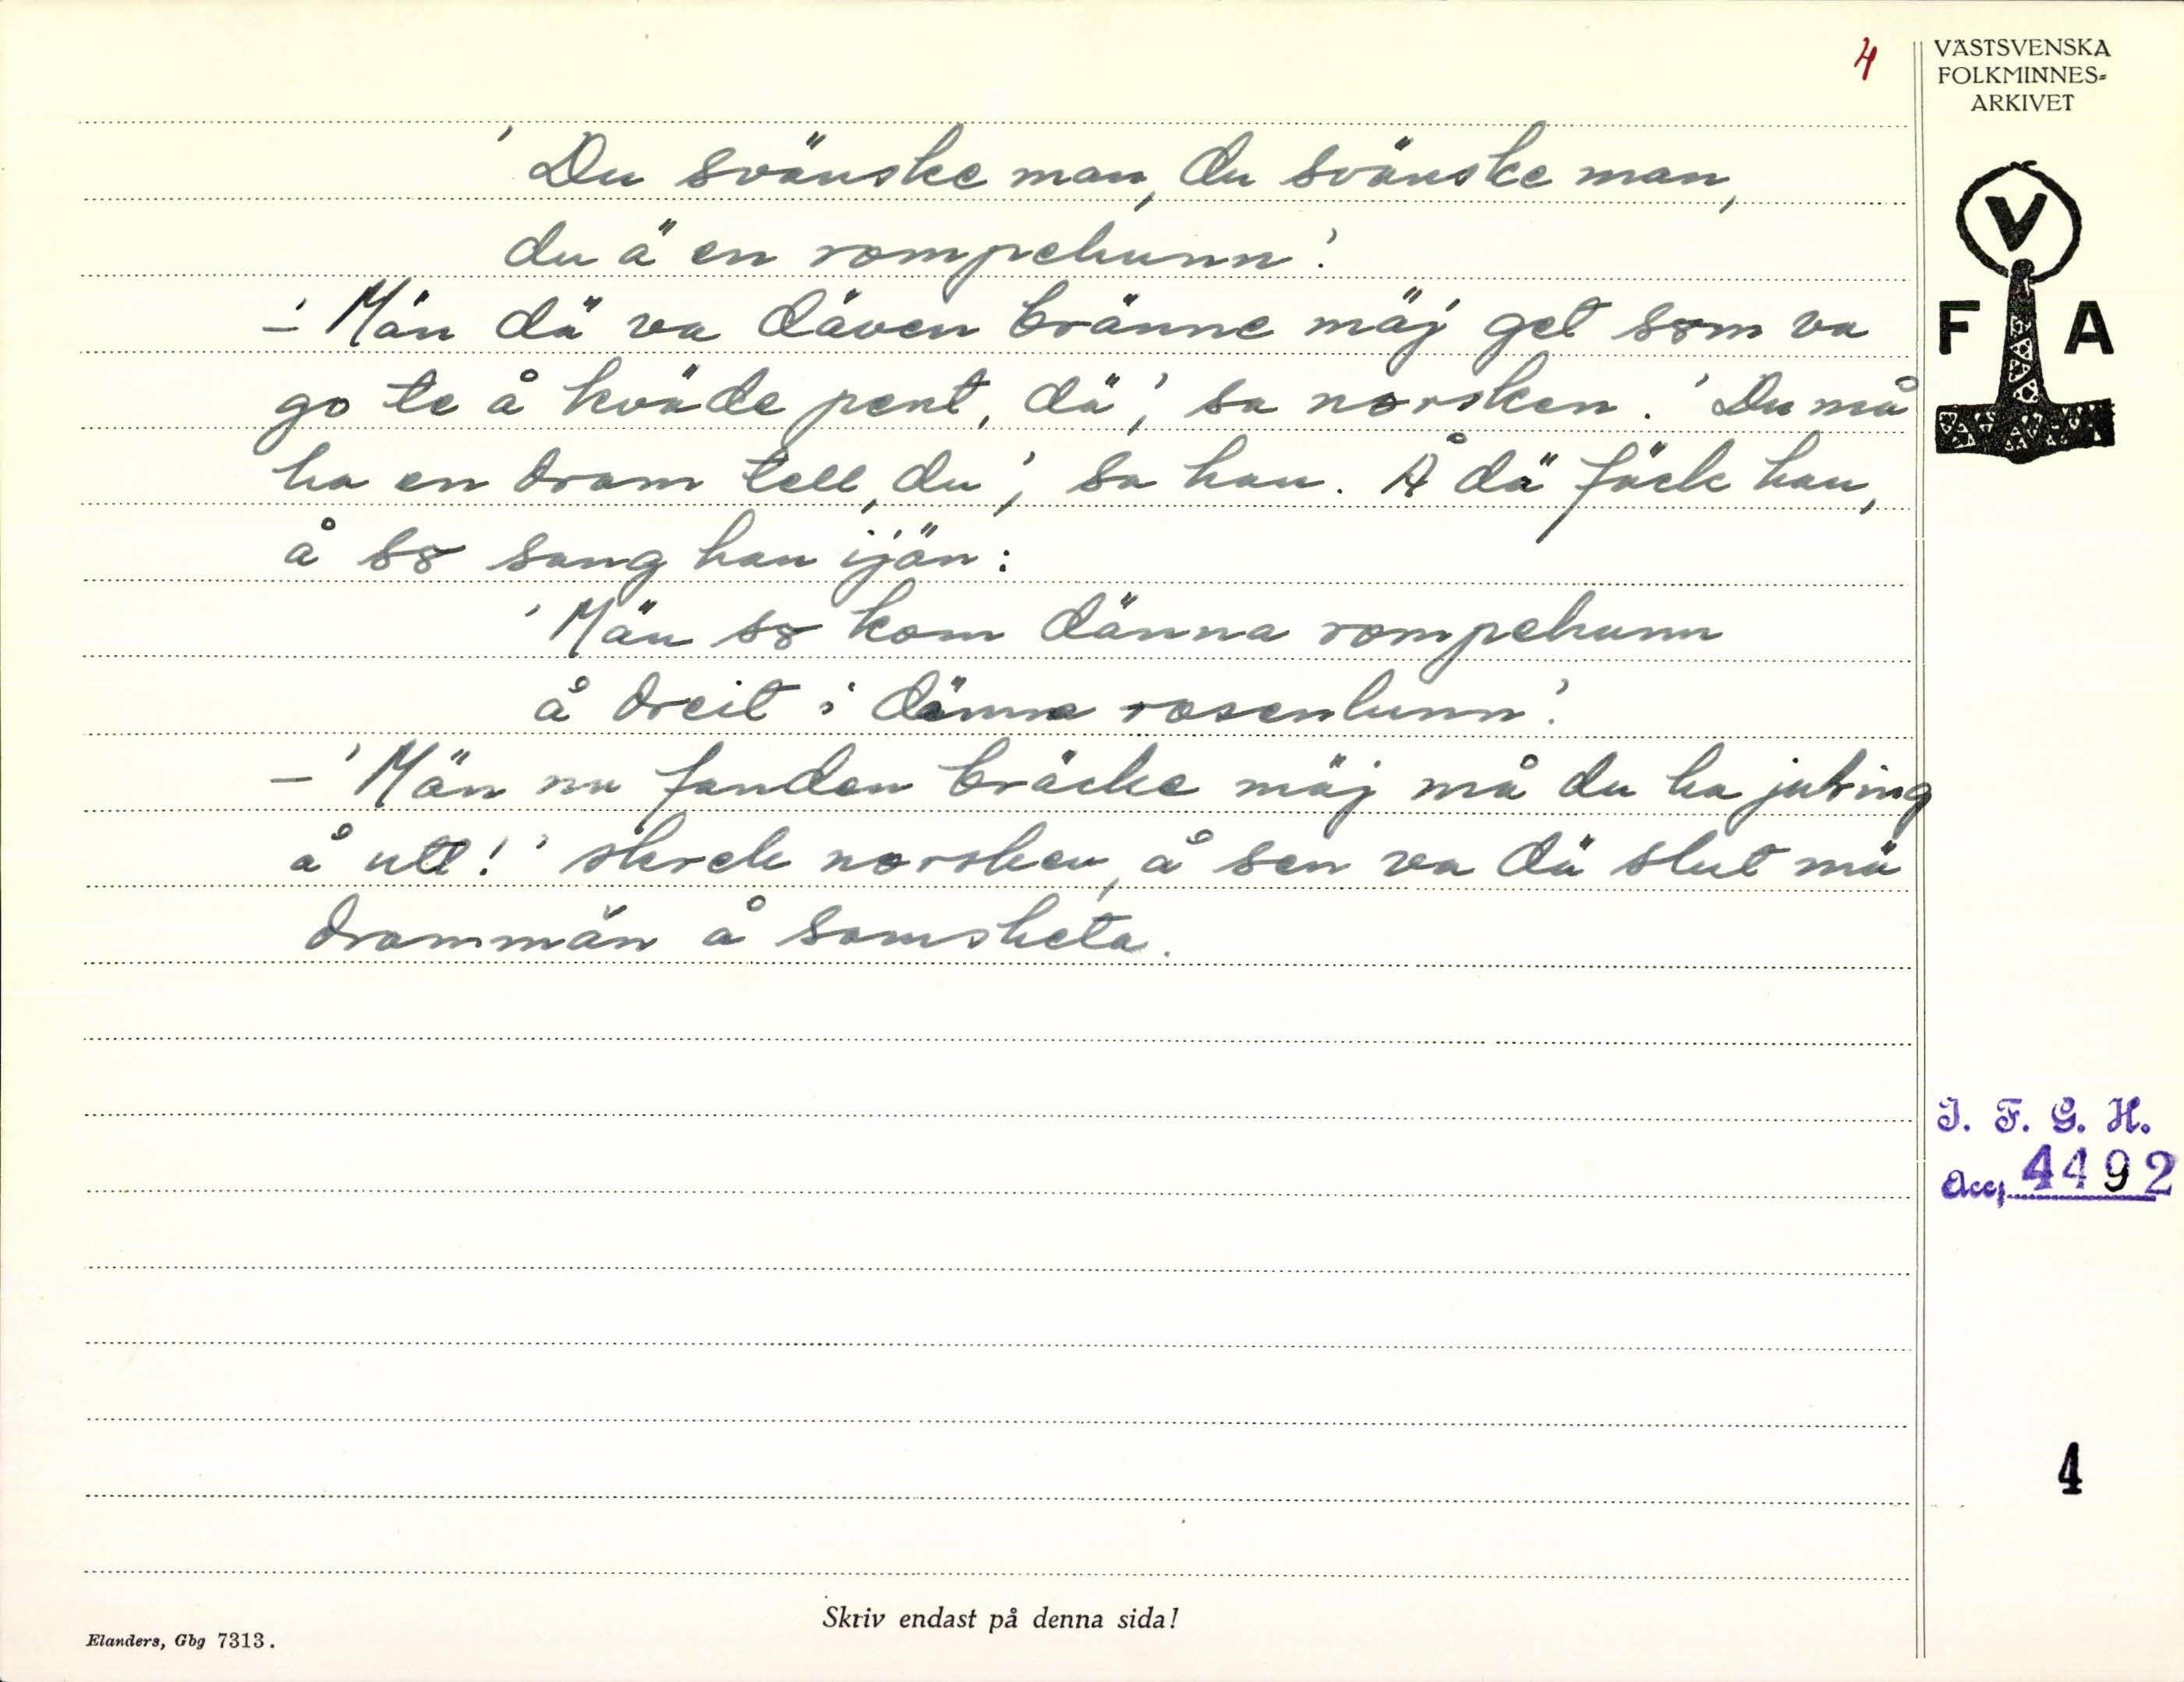 4
VÄSTSVENSKA
FOLKMINNES=
ARKIVET
V
F A
'Du svänske man, du svänske man,
du ä en rompehunn'.
-'Män dä va däven bränne mäj get som va
go te å kväde pent, dä', sa norsken. 'Du må
ha en dram tell, du', sa han. Å dä fäck han,
å so sang han ijän:
'Män so kom dänna rompehunn
å dreit i dänna rosenlunn'.
-'Män nu fanden bräcke mäj må du ha juling
å utt!' skrek norsken, å sen va dä slut mä
drammän å samsketa.
I. F. G. H.
Acc. 4492
4
Skriv endast på denna sida!
Elanders, Gbg 7313.